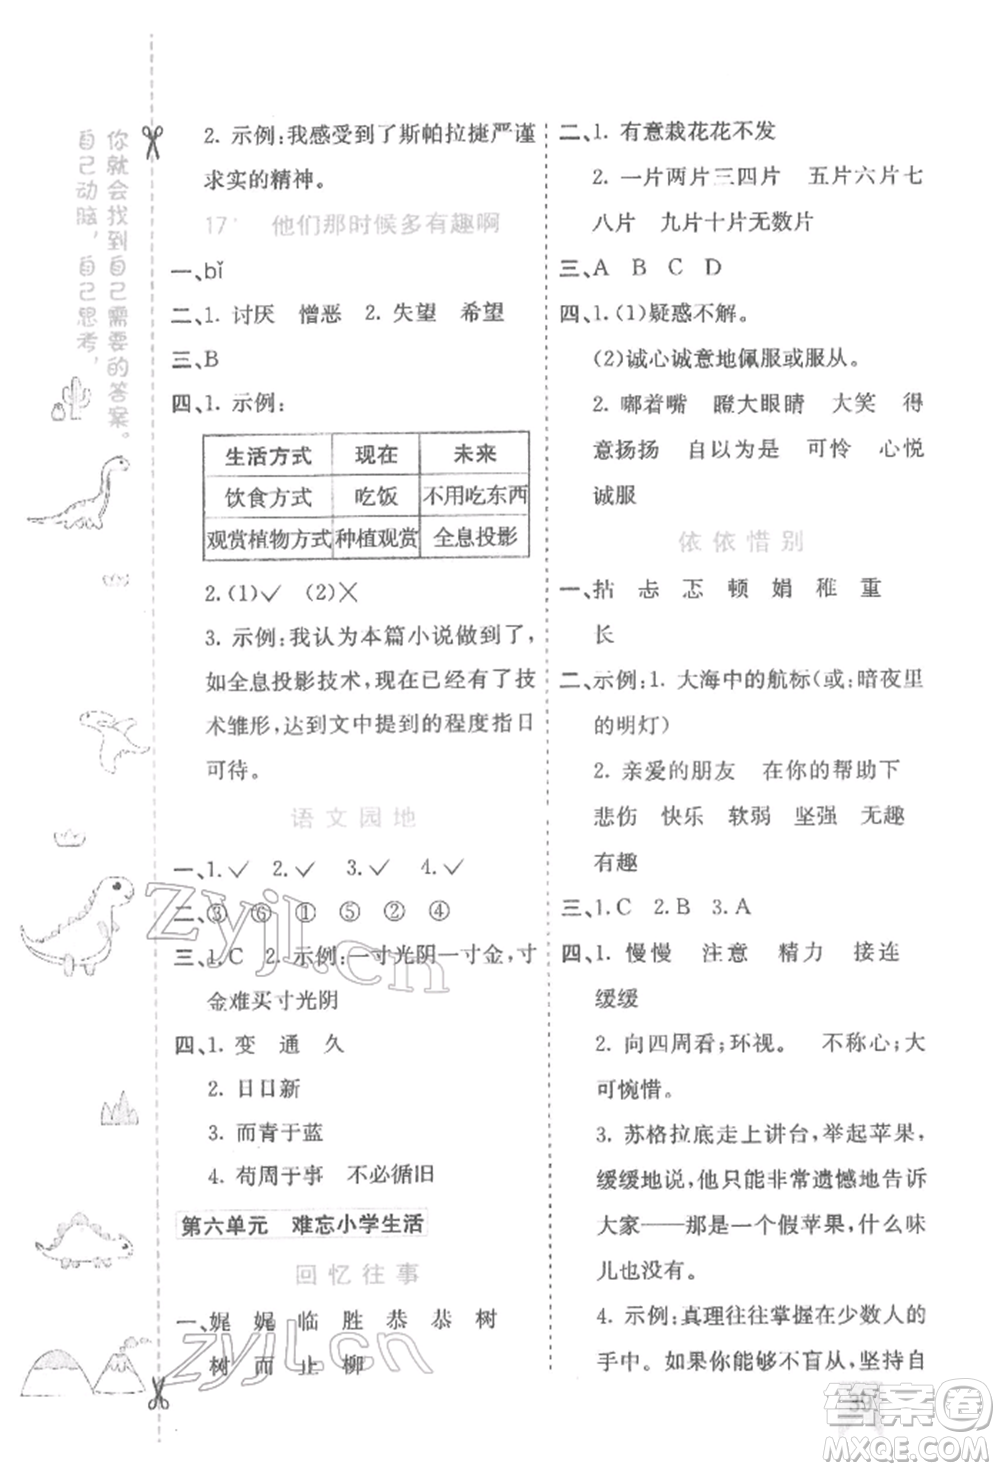 你就会找到自己需要的答案。
自己动脑，自己思考，
2. 示例:我感受到了斯帕拉捷严谨
求实的精神。
17* 他们那时候多有趣啊
一、bǐ
二、1. 讨厌 憎恶 2. 失望 希望
三、B
四、1. 示例:
生活方式 现在 未来
饮食方式 吃饭 不用吃东西
观赏植物方式 种植观赏 全息投影
2.(1)✓ (2)✕
3. 示例:我认为本篇小说做到了,
如全息投影技术,现在已经有了技
术雏形,达到文中提到的程度指日
可待。
语文园地
一、1.✓ 2.✓ 3.✓ 4.✓
二、③ ⑥ ① ⑤ ② ④
三、1.C 2. 示例:一寸光阴一寸金,寸
金难买寸光阴
四、1. 变 通 久
2. 日日新
3. 而青于蓝
4. 苟周于事 不必循旧
第六单元 难忘小学生活
回忆往事
一、娓 娓 临 胜 恭 恭 树
树 而 止 柳
二、1. 有意栽花花不发
2. 一片两片三四片 五片六片七
八片 九片十片无数片
三、A B C D
四、1.(1)疑惑不解。
(2)诚心诚意地佩服或服从。
2. 嘟着嘴 瞪大眼睛 大笑 得
意扬扬 自以为是 可怜 心悦
诚服
依依惜别
一、拈 忐 忑 顿 娟 稚 重
长
二、示例:1. 大海中的航标(或:暗夜里
的明灯)
2. 亲爱的朋友 在你的帮助下
悲伤 快乐 软弱 坚强 无趣
有趣
三、1.C 2.B 3.A
四、1. 慢慢 注意 精力 接连
缓缓
2. 向四周看;环视。 不称心;大
可惋惜。
3. 苏格拉底走上讲台,举起苹果,
缓缓地说,他只能非常遗憾地告诉
大家——那是一个假苹果,什么味
儿也没有。
4. 示例:真理往往掌握在少数人的
手中。如果你能够不盲从,坚持自
zyjl.cn
zyjl.cn
答案卷
MXQE.COM